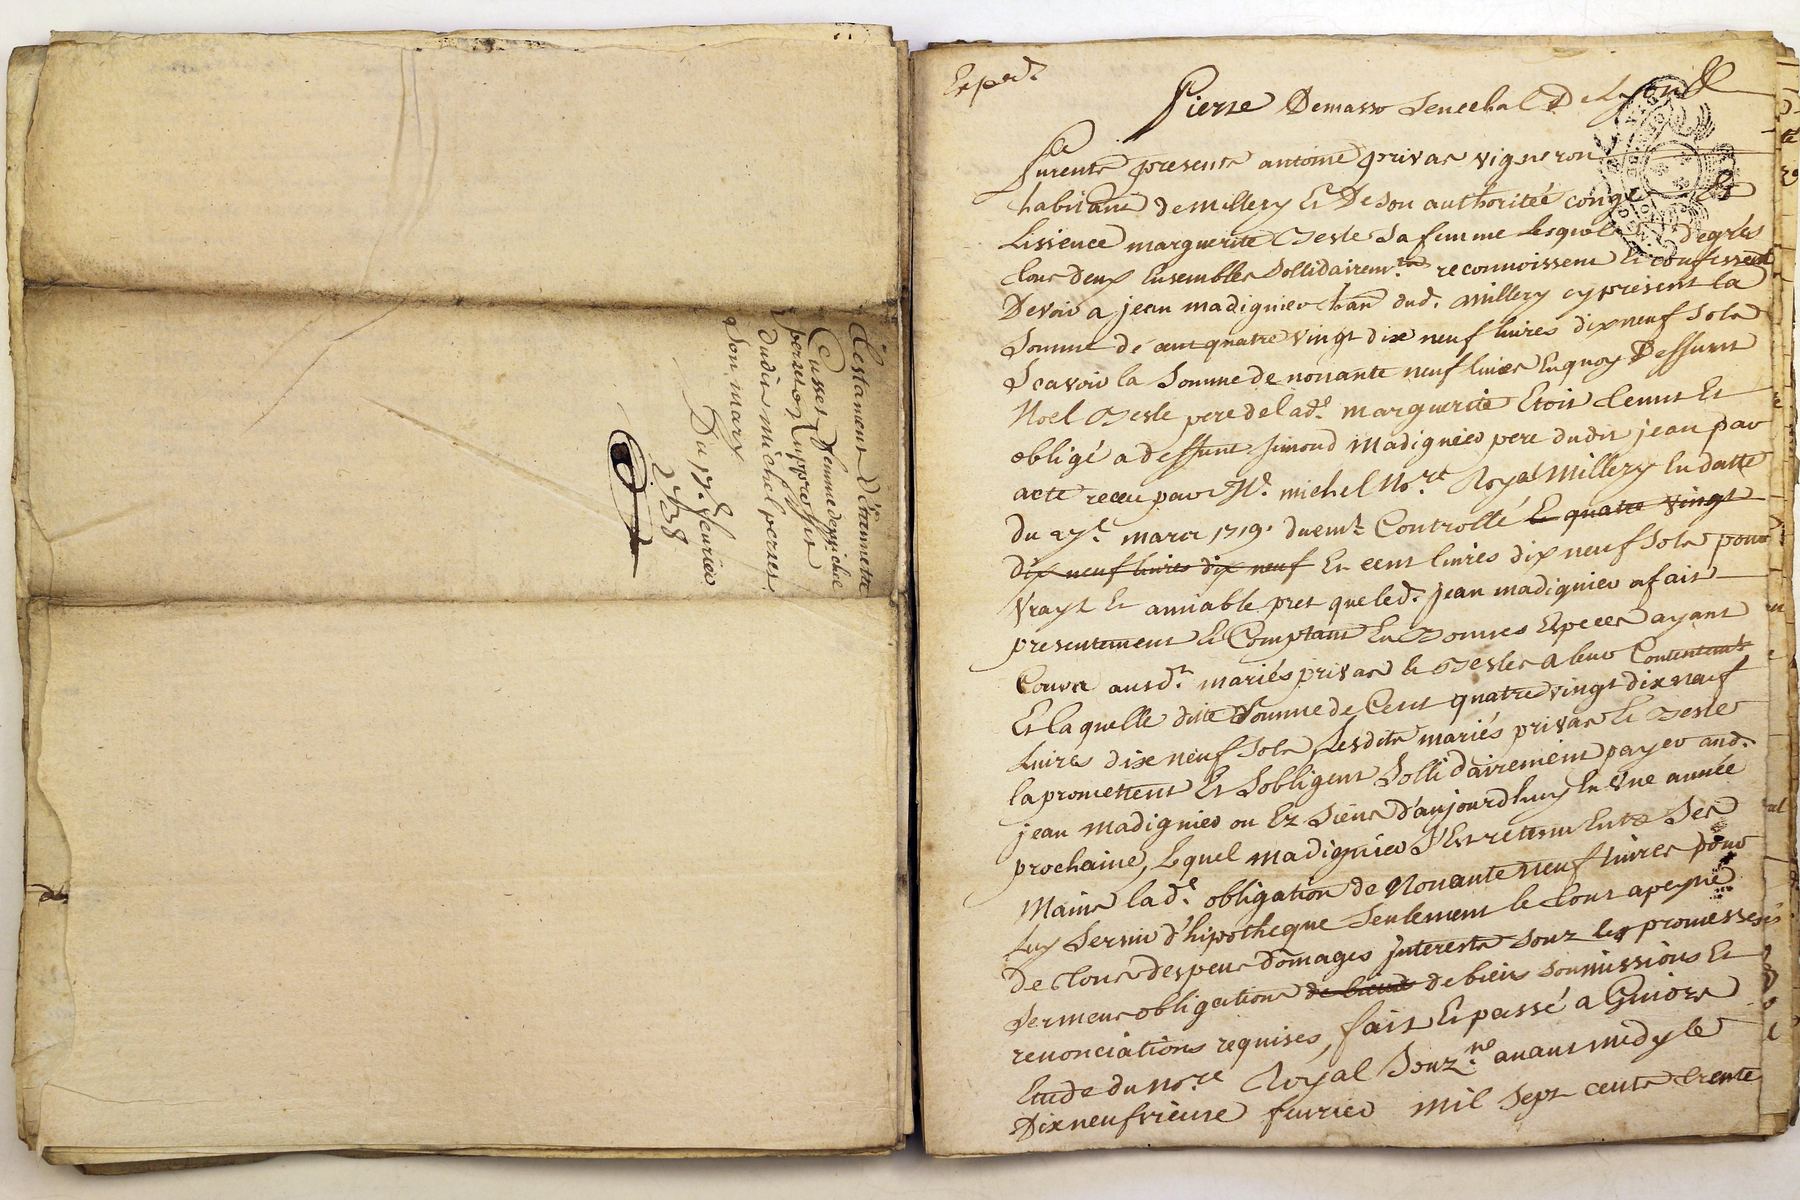 Testament d'ennemette
Cusset femme de michel
perret Et
dudit michel perret
son mary
Du 17e. feurier
1738
de
Exped.
Pierre Demasso Senechal De Lyon
furent presents antoine privas vigneron
habitant de millery Et De son authoritée congé Et
Lissence marguerite Teste sa femme Lesquels degrés
tous deux Ensembles sollidairemt. reconnoissent Et confessent
Devoir a jean madignier dud. millery cy present la
somme de cent quatre vingt dix neuf liures dix neuf sols
scavoir la somme de nonante neuf liures En quoy Deffunt
Noel Teste pere de lade. marguerite Etoit tenut Et
obligé a deffunt simond madignier pere dudit jean par
acte receu par Me. michel No.re Royal Millery En datte
du 27e. mars 1719. duemt. Controllé Et quatre vingt
dix neuf liures dix neuf Et cent liures dix neuf sols pour
Vrayt Et amiable pret que led. jean madignier a fait
presentement Et Comptant En bonnes Especes ayant
Cours ausd.ts mariés privas Et Teste a leur Contentemt.
Et laquelle ditte somme de Cent quatre vingt dix neuf
Liures dix neuf sols Lesdits mariés privas Et Teste
la promettent Et sobligent sollidairement payer aud.
jean madignier ou Ez siens d'aujourdhuy En Une année
prochaine, Lequel madignier s'Est retenu Entre Ses
Mains lade. obligation de Nonante neuf liures pour
Luy servir d'hipotheque seulement le tout a peyne
de tous despens domages interests souz les promesses
serment obligations de biens de biens soumissions Et
renonciations requises, fait Et passé a Givors
Etude du no.re Royal souz.né avant midy le
Dixneufvieme feurier mil sept cents trente